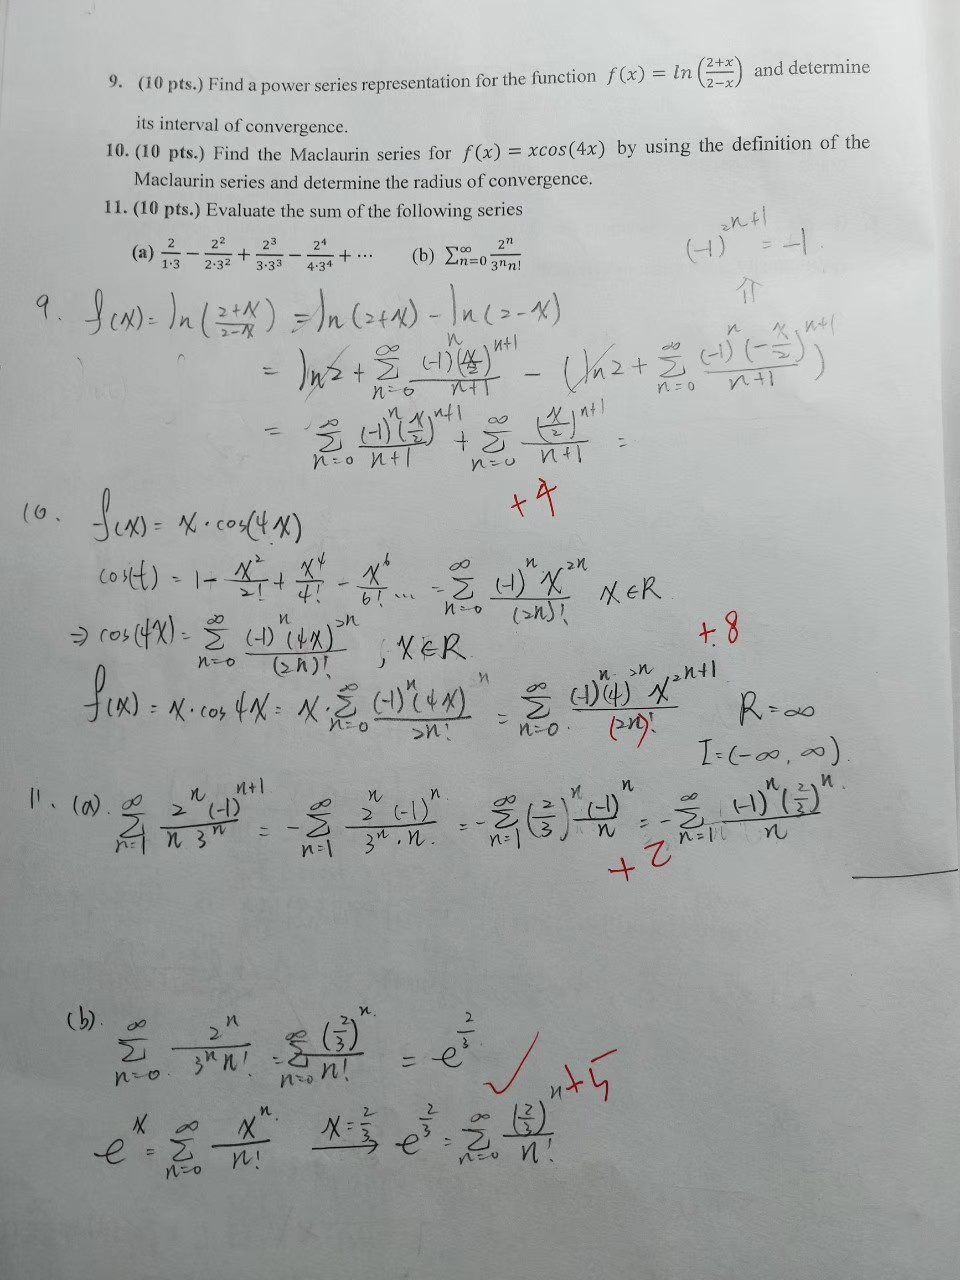 9. (10 pts.) Find a power series representation for the function f(x) = ln((2+x)/(2−x)) and determine
its interval of convergence.
10. (10 pts.) Find the Maclaurin series for f(x) = xcos(4x) by using the definition of the
Maclaurin series and determine the radius of convergence.
11. (10 pts.) Evaluate the sum of the following series
(a) 2/(1·3) − 2²/(2·3²) + 2³/(3·3³) − 2⁴/(4·3⁴) + ⋯ (b) ∑_{n=0}^{∞} 2ⁿ/(3ⁿn!)
(-1)^{2n+1} = -1.
⇑
9. f(x) = ln((2+x)/(2-x)) = ln(2+x) - ln(2-x)
= ln2 + ∑_{n=0}^{∞} (-1)^n (x/2)^{n+1}/(n+1) - (ln2 + ∑_{n=0}^{∞} (-1)^n (-x/2)^{n+1}/(n+1))
= ∑_{n=0}^{∞} (-1)^n (x/2)^{n+1}/(n+1) + ∑_{n=0}^{∞} (x/2)^{n+1}/(n+1) =
+4
10. f(x) = x·cos(4x)
cos(t) = 1 - x²/2! + x⁴/4! - x⁶/6! ... = ∑_{n=0}^{∞} (-1)^n x^{2n}/(2n)! x∈R
⇒ cos(4x) = ∑_{n=0}^{∞} (-1)^n (4x)^{2n}/(2n)! , x∈R
+8
f(x) = x·cos4x = x·∑_{n=0}^{∞} (-1)^n (4x)^n/2n! = ∑_{n=0}^{∞} (-1)^n (4)^{2n} x^{2n+1}/(2n)! R=∞
I=(-∞, ∞).
11. (a). ∑_{n=1}^{∞} 2^n (-1)^{n+1}/(n 3^n) = -∑_{n=1}^{∞} 2^n (-1)^n/(3^n·n) = -∑_{n=1}^{∞} (2/3)^n (-1)^n/n = -∑_{n=1}^{∞} (-1)^n (2/3)^n/n
+2
(b). ∑_{n=0}^{∞} 2^n/(3^n n!) = ∑_{n=0}^{∞} (2/3)^n/n! = e^{2/3} ✓
+5
e^x = ∑_{n=0}^{∞} x^n/n! x=2/3 → e^{2/3} = ∑_{n=0}^{∞} (2/3)^n/n!